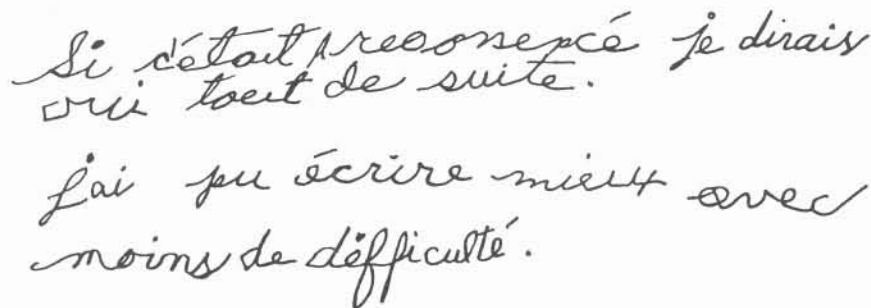 Si c'était à recommencé je dirais
oui tout de suite.
j'ai pu écrire mieux avec
moins de difficulté.